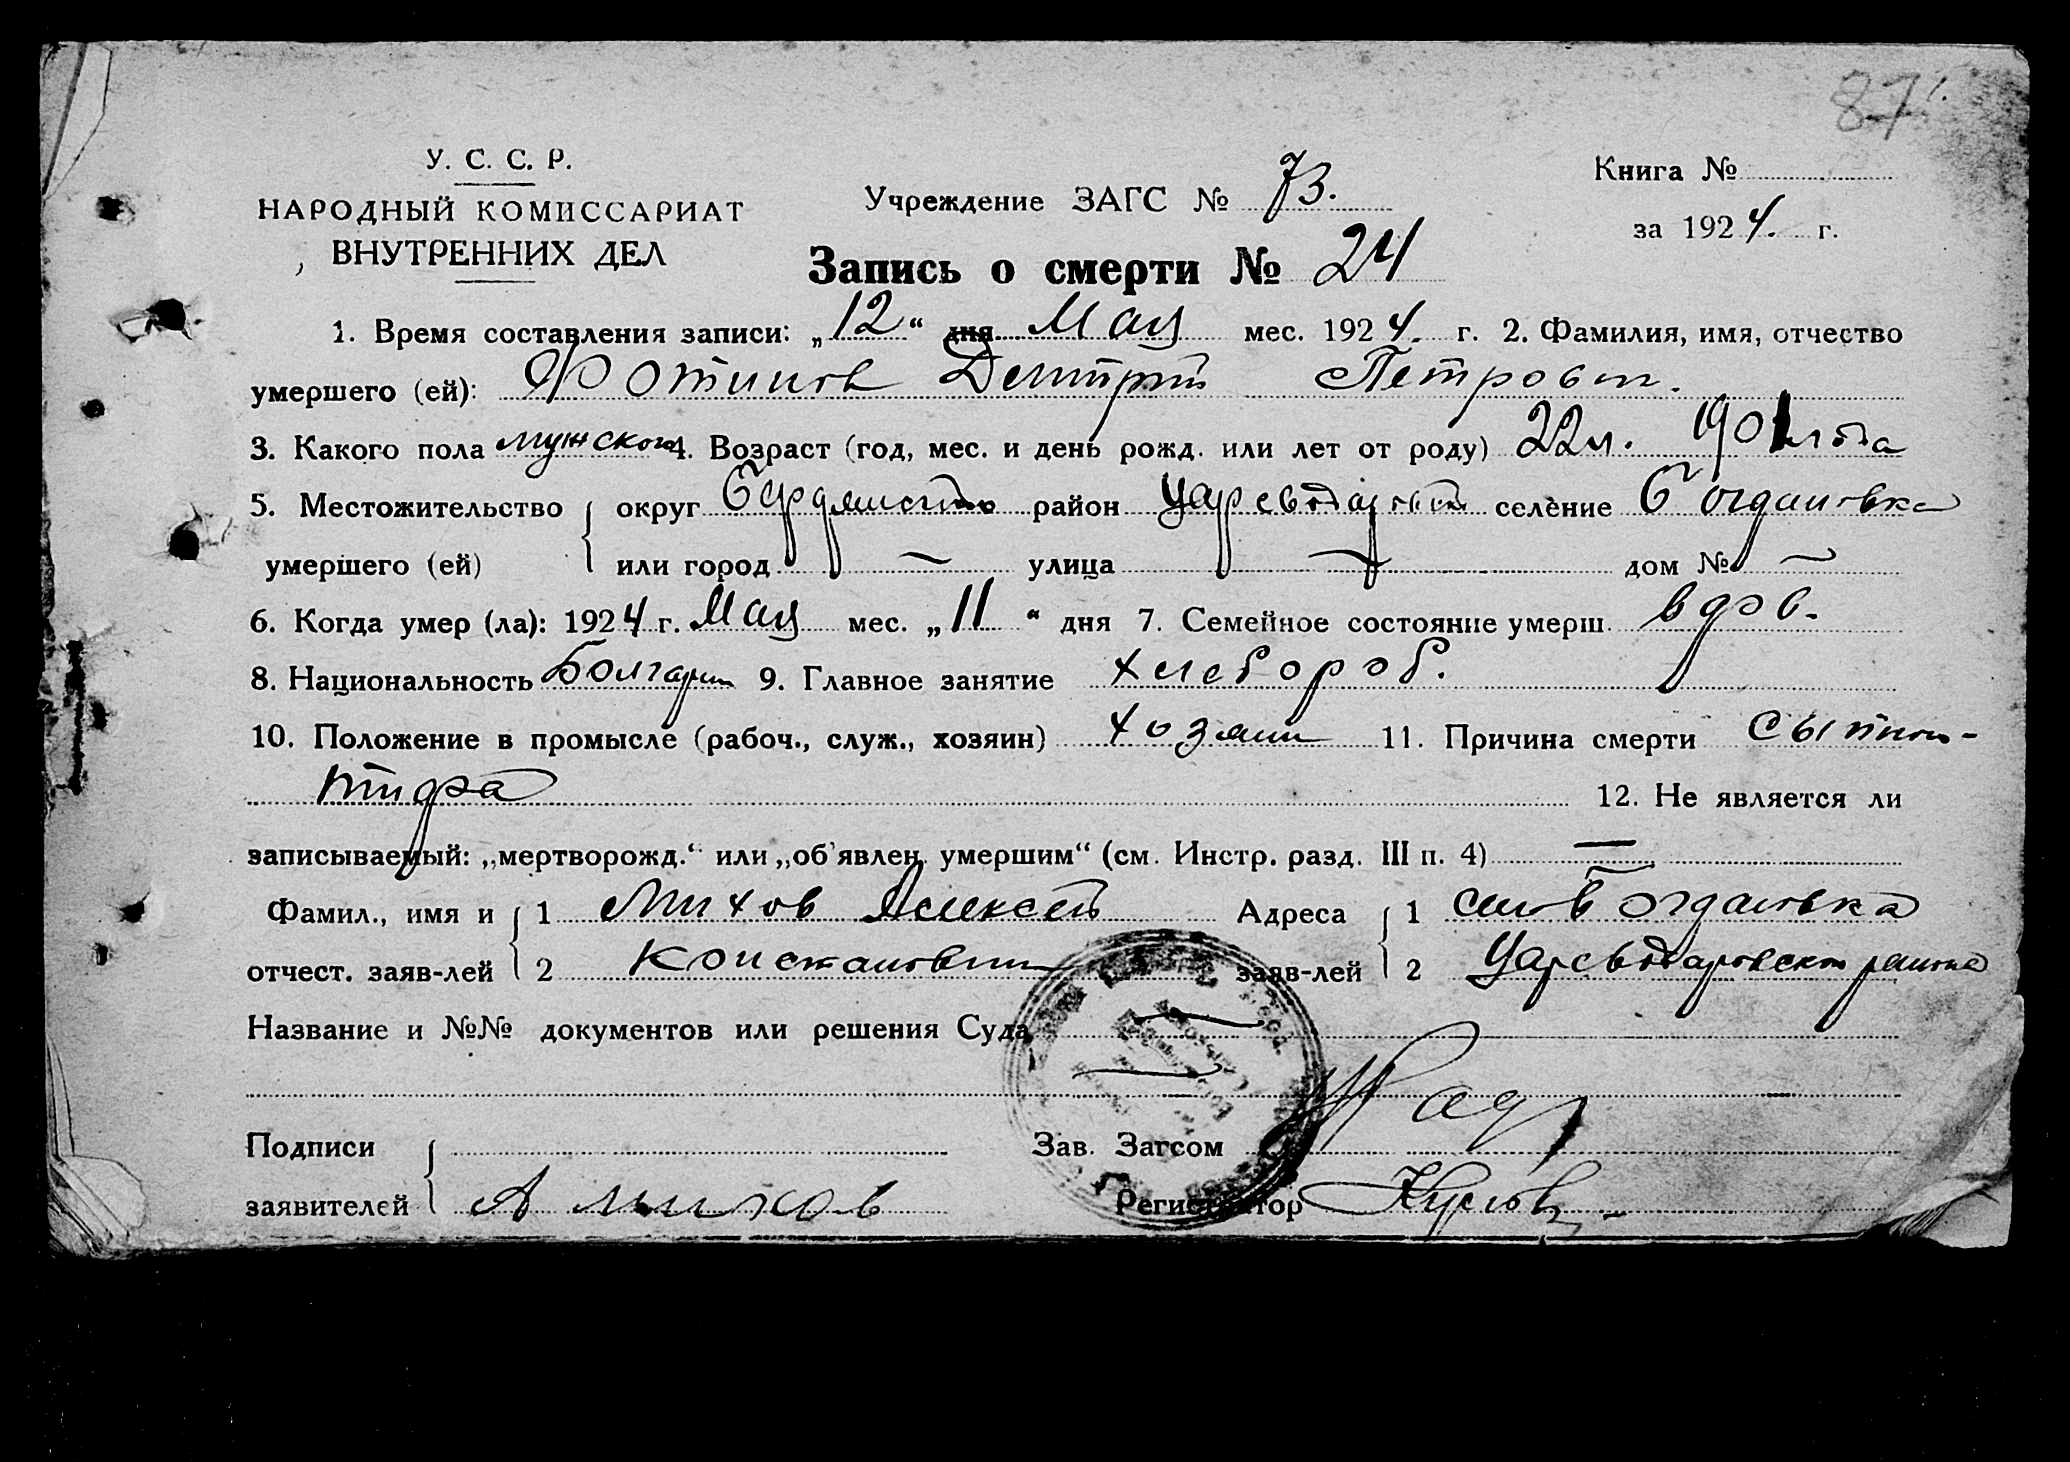 87
У. С. С. Р.
НАРОДНЫЙ КОМИССАРИАТ
ВНУТРЕННИХ ДЕЛ
Учреждение ЗАГС № 73.
Книга №
за 1924. г.
Запись о смерти № 24
1. Время составления записи: „12“ дня Мая мес. 1924. г. 2. Фамилия, имя, отчество
умершего (ей): Фотинов Дмитрий Петрович.
3. Какого пола мужского 4. Возраст (год, мес. и день рожд. или лет от роду) 22 л. 1901 года
5. Местожительство округ Бердянский район Цареводаровский селение Богдановка
умершего (ей) или город — улица — дом № —
6. Когда умер (ла): 1924 г. Мая мес. „11“ дня 7. Семейное состояние умерш. вдов.
8. Национальность Болгарин 9. Главное занятие хлебороб.
10. Положение в промысле (рабоч., служ., хозяин) хозяин 11. Причина смерти сыпной
тифа 12. Не является ли
записываемый: „мертворожд.“ или „об'явлен. умершим“ (см. Инстр. разд. III п. 4) —
Фамил., имя и 1 Михов Алексей Адреса 1 село Богдановка
отчест. заяв-лей 2 Констанович заяв-лей 2 Цареводаровского района
Название и №№ документов или решения Суда —
—
Подписи Зав. Загсом
заявителей А Михов Регистратор